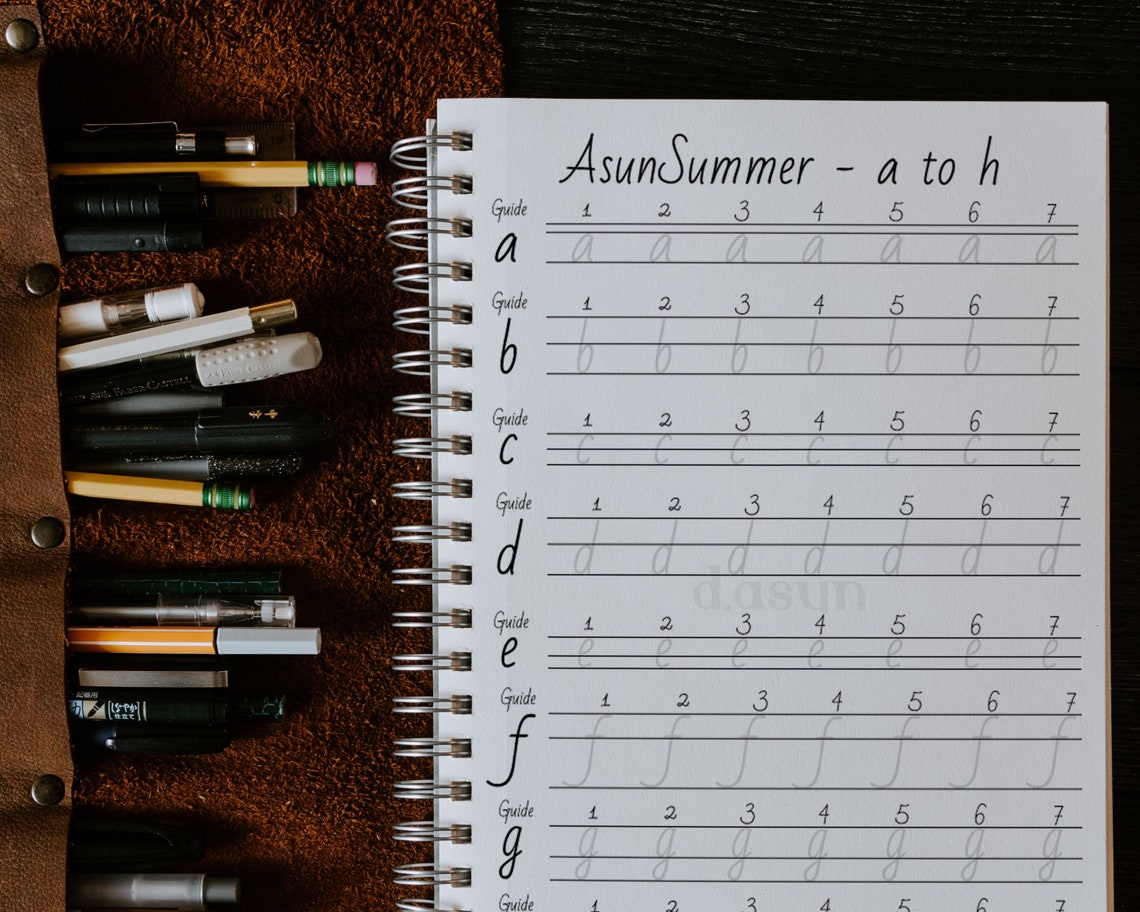 AsunSummer - a to h
Guide 1 2 3 4 5 6 7
a a a a a a a a
Guide 1 2 3 4 5 6 7
b b b b b b b b
Guide 1 2 3 4 5 6 7
c c c c c c c c
Guide 1 2 3 4 5 6 7
d d d d d d d d
d.asyn
Guide 1 2 3 4 5 6 7
e e e e e e e e
Guide 1 2 3 4 5 6 7
f f f f f f f f
Guide 1 2 3 4 5 6 7
g g g g g g g g
Guide 1 2 3 4 5 6 7
FABER-CASTELL
仕立て